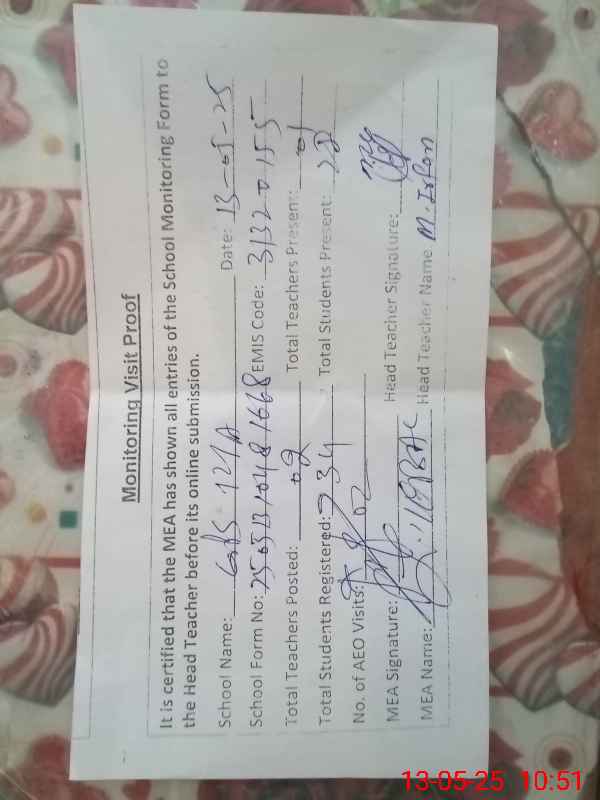 Monitoring Visit Proof
It is certified that the MEA has shown all entries of the School Monitoring Form to
the Head Teacher before its online submission.
School Name: GPS 121A Date: 13-05-25
School Form No: EMIS Code: 31320155
Total Teachers Posted: 02 Total Teachers Present: 01
Total Students Registered: 34 Total Students Present: 28
No. of AEO Visits: 02
MEA Signature: Head Teacher Signature:
MEA Name: Head Teacher Name M. Irfan
13-05-25 10:51